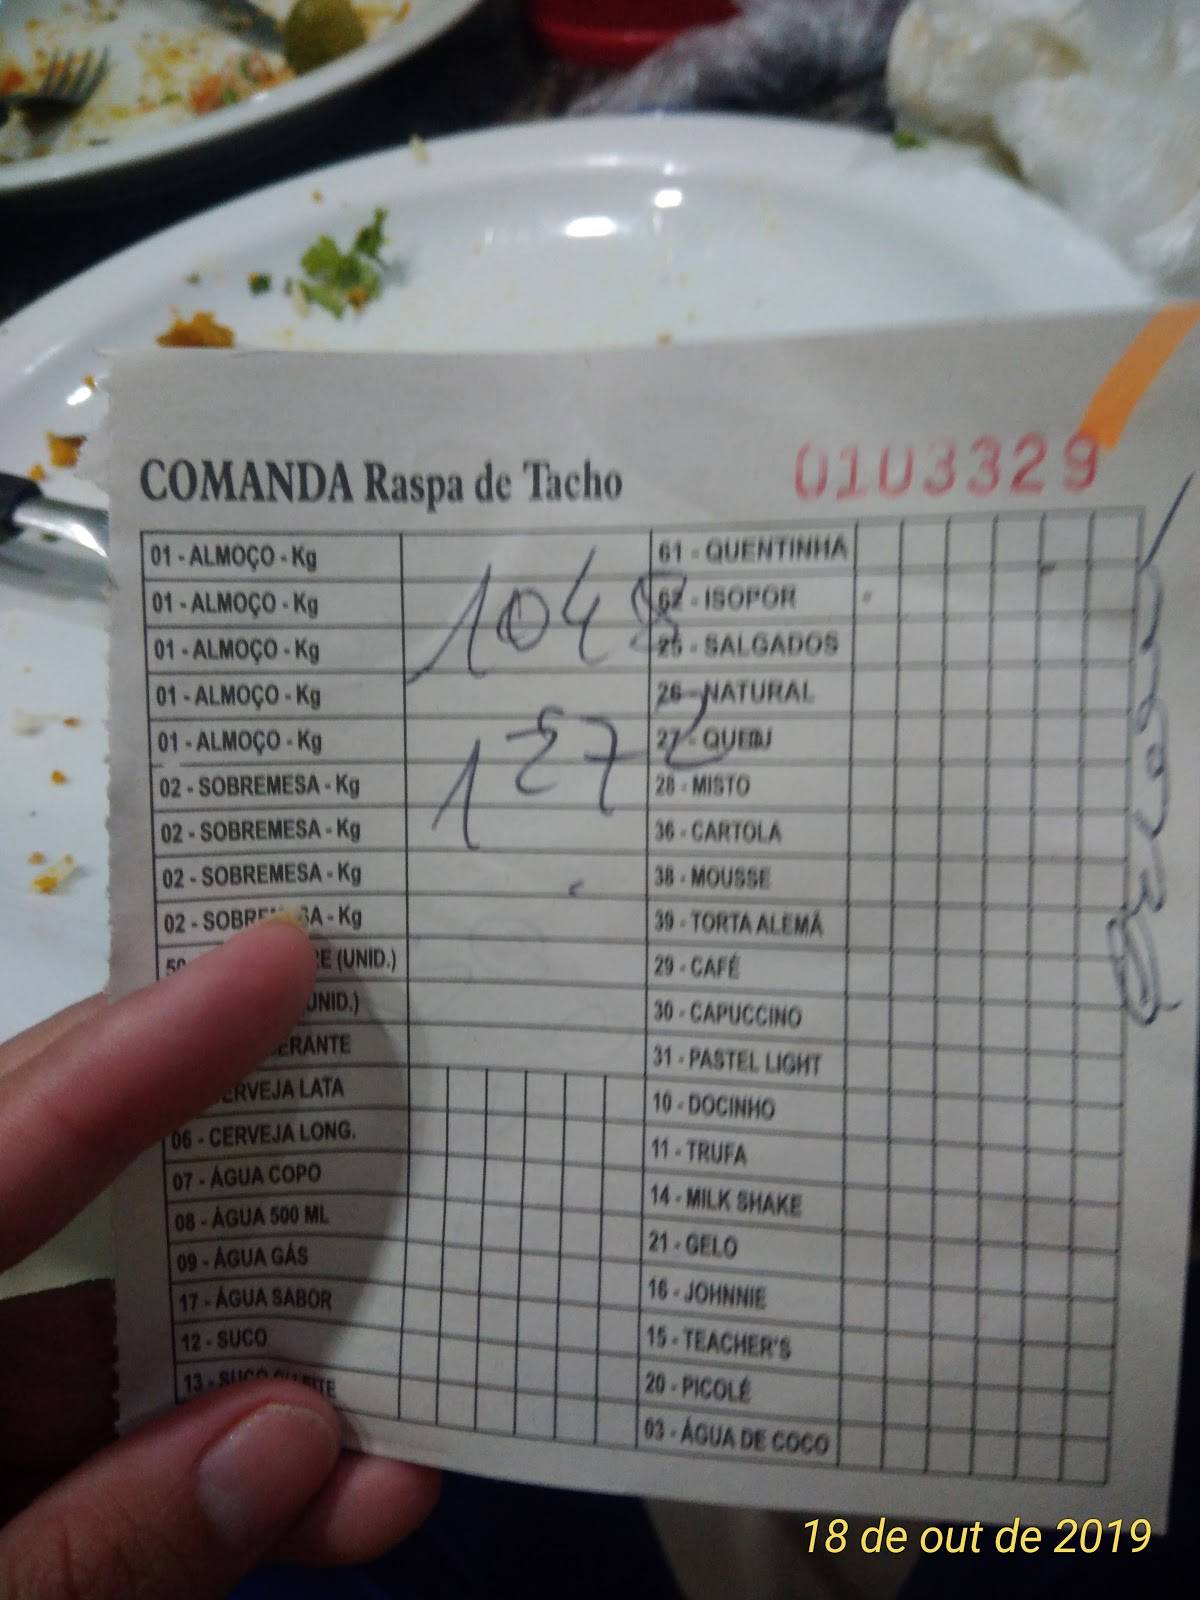 COMANDA Raspa de Tacho 0103329
01 - ALMOÇO - Kg
01 - ALMOÇO - Kg
01 - ALMOÇO - Kg
01 - ALMOÇO - Kg
01 - ALMOÇO - Kg
02 - SOBREMESA - Kg
02 - SOBREMESA - Kg
02 - SOBREMESA - Kg
02 - SOBREMESA - Kg
(UNID.)
06 - CERVEJA LONG.
07 - ÁGUA COPO
08 - ÁGUA 500 ML
09 - ÁGUA GÁS
17 - ÁGUA SABOR
12 - SUCO
1048
1272
61 - QUENTINHA
62 - ISOPOR
25 - SALGADOS
26 - NATURAL
27 - QUEIJ
28 - MISTO
36 - CARTOLA
38 - MOUSSE
39 - TORTA ALEMÃ
29 - CAFÉ
30 - CAPUCCINO
31 - PASTEL LIGHT
10 - DOCINHO
11 - TRUFA
14 - MILK SHAKE
21 - GELO
16 - JOHNNIE
15 - TEACHER'S
20 - PICOLÉ
03 - ÁGUA DE COCO
18 de out de 2019